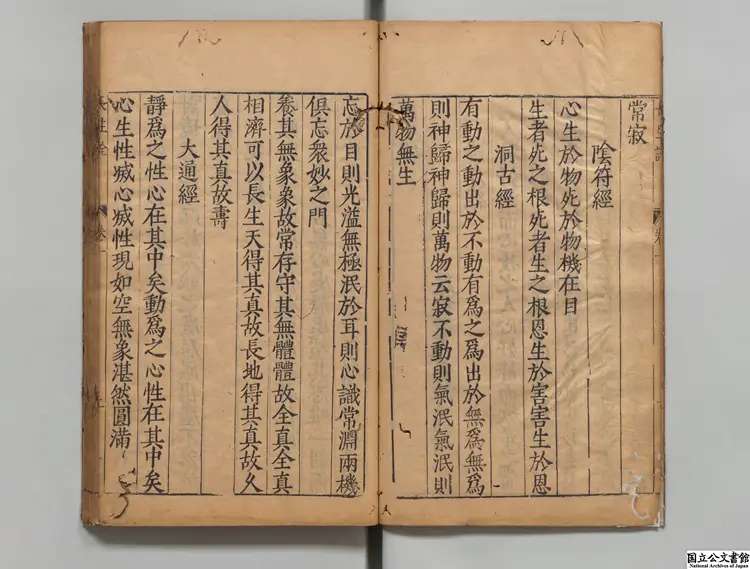 常寂
陰符經
心生於物死於物機在目
生者死之根死者生之根恩生於害害生於恩
洞古經
有動之動出於不動有為之為出於無為無為
則神歸神歸則萬物云寂不動則氣泯氣泯則
萬物無生
忘於目則光溢無極泯於耳則心識常淵兩機
俱忘衆妙之門
養其無象象故常存守其無體體故全真全真
相濟可以長生天得其真故長地得其真故久
人得其真故壽
大通經
靜為之性心在其中矣動為之心性在其中矣
心生性滅心滅性現如空無象湛然圓滿
国立公文書館
National Archives of Japan